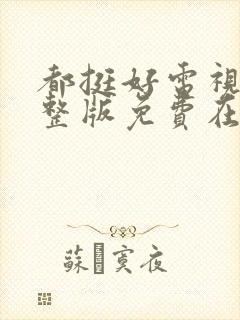 都挺好電視
整版免費在
蘇寞夜